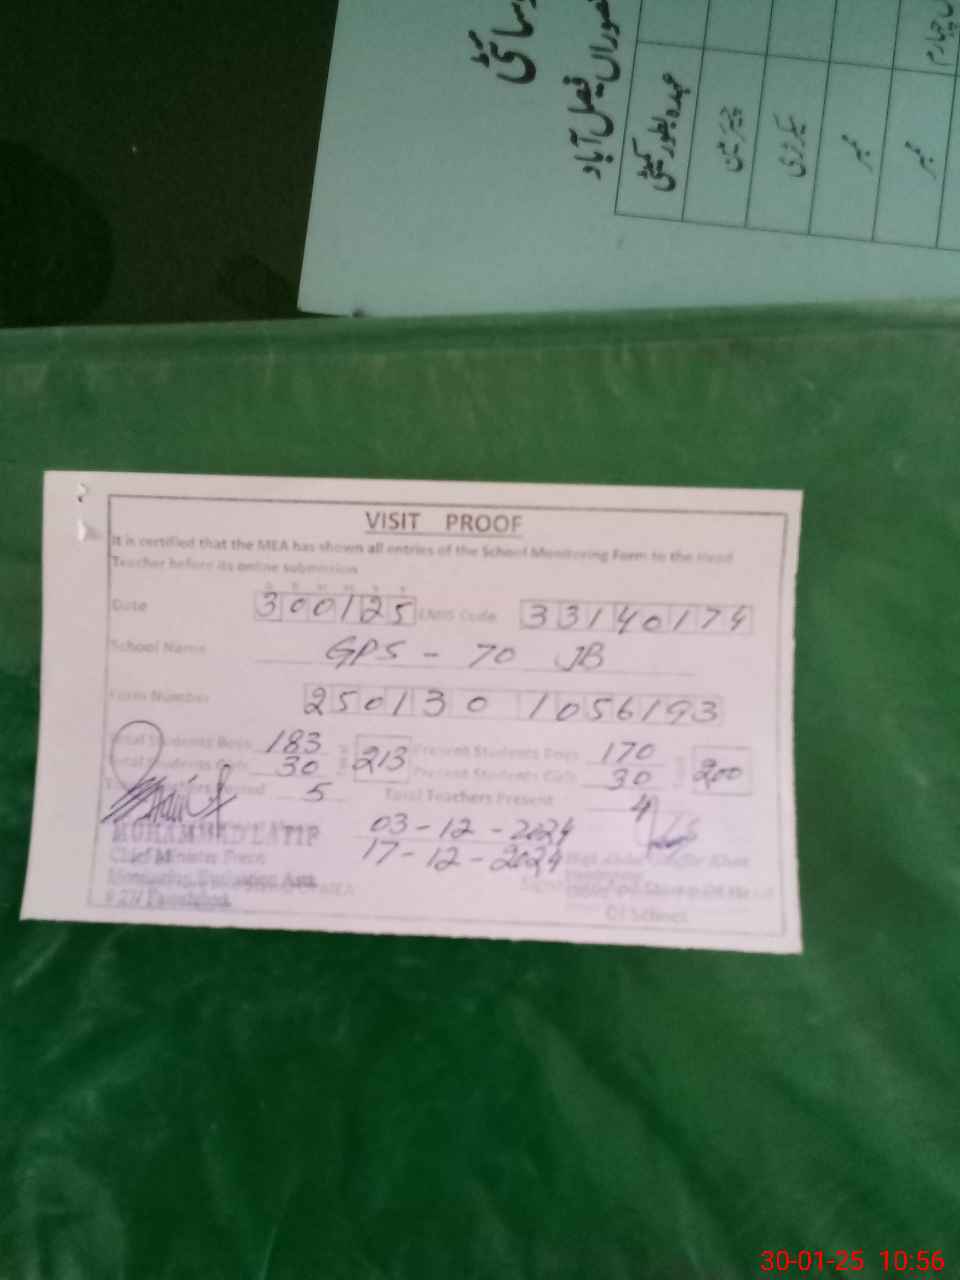 فیصل آباد
عہدہ بطور کمیٹی
چیئرمین
سیکرٹری
ممبر
ممبر
VISIT PROOF
It is certified that the MEA has shown all entries of the School Monitoring Form to the Head
Teacher before its online submission
Date 300125 EMIS Code 33140174
School Name GPS - 70 JB
Form Number 2501301056193
Total Students Boys 183 213 Present Students Boys 170 200
Total Students Girls 30 Present Students Girls 30
5 Total Teachers Present 4
MUHAMMAD LATIF 03-12-2024
Chief Minister 17-12-2024
Monitoring Evaluation Asst
MEA
Of School
30-01-25 10:56